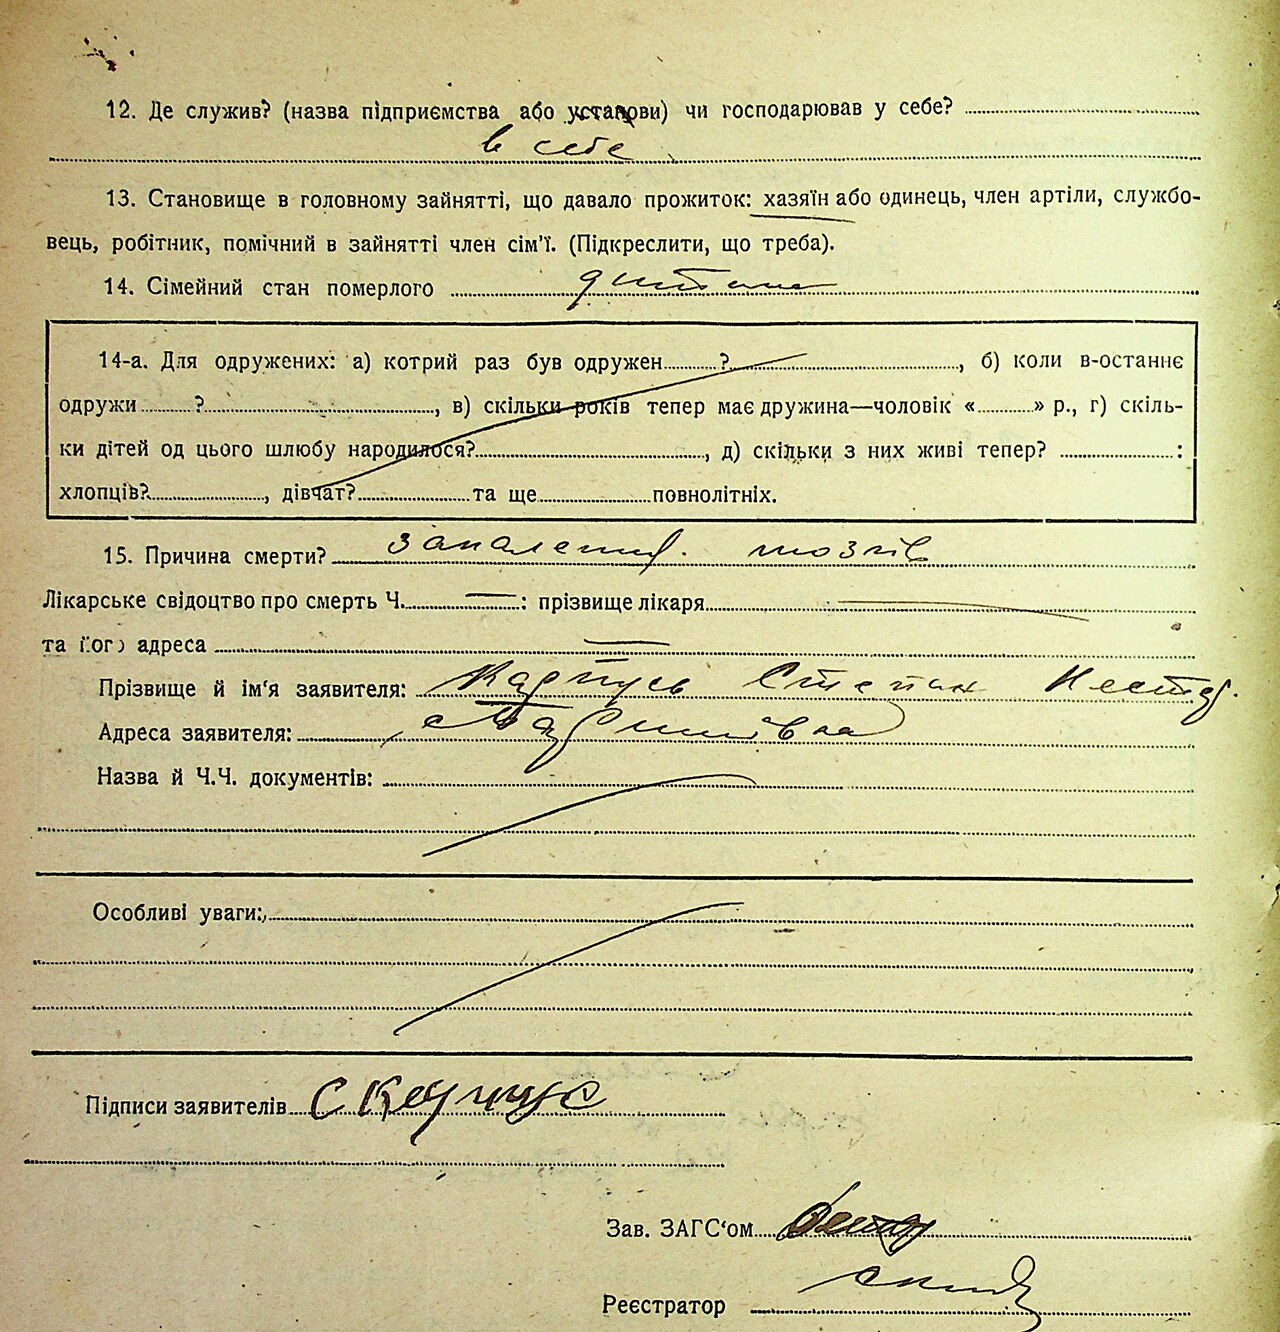 12. Де служив? (назва підприємства або установи) чи господарював у себе?
в себе
13. Становище в головному зайнятті, що давало прожиток: хазяїн або одинець, член артіли, службо-
вець, робітник, помічний в зайнятті член сім'ї. (Підкреслити, що треба).
14. Сімейний стан померлого дитина
14-а. Для одружених: а) котрий раз був одружен ?, б) коли в-останнє
одружи ?, в) скільки років тепер має дружина—чоловік « » р., г) скіль-
ки дітей од цього шлюбу народилося?, д) скільки з них живі тепер? :
хлопців?, дівчат? та ще повнолітніх.
15. Причина смерти? запалення мозгів
Лікарське свідоцтво про смерть Ч. — : прізвище лікаря —
та його адреса —
Прізвище й ім'я заявителя: Степан Нестер.
Адреса заявителя: с
Назва й Ч.Ч. документів:
Особливі уваги:
Підписи заявителів С
Зав. ЗАГС'ом
Реєстратор